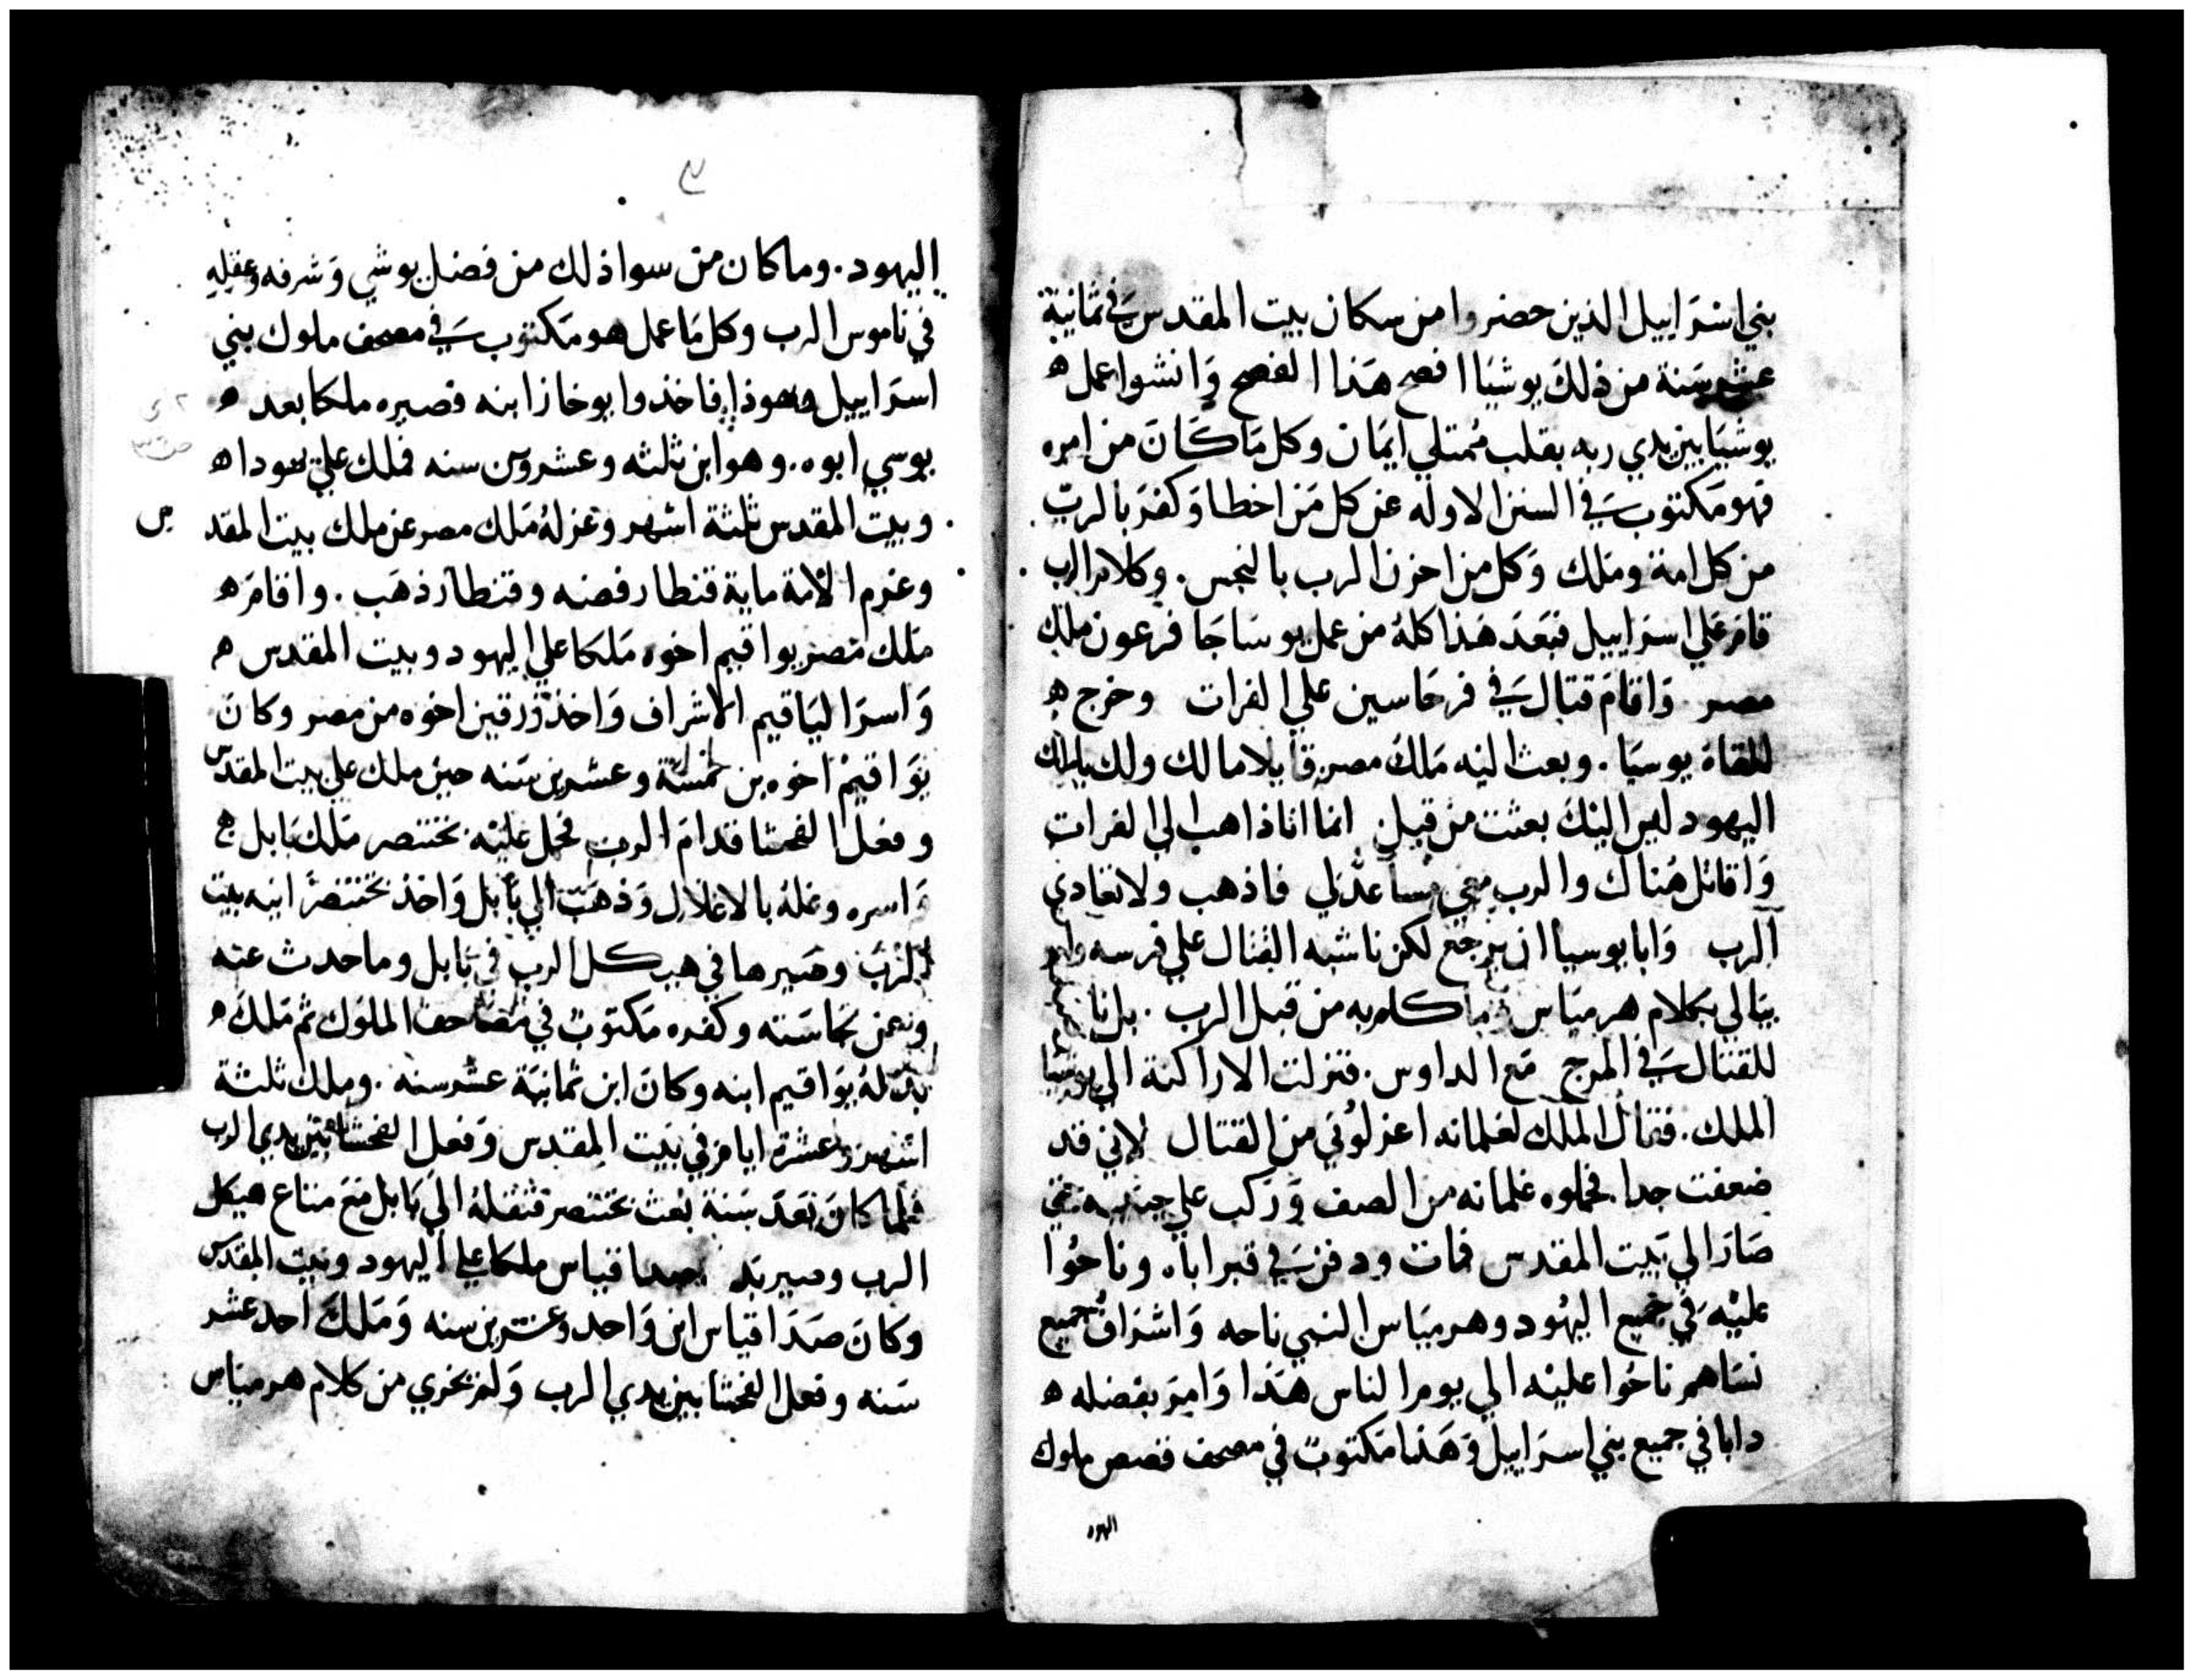 بني اسرَاييل الذين حضروا من سكان بيت المقدس في ثمانية
عشر سَنة من ذلكَ يوشيَا افصح هَذا الفصح وَانشوا عمل ه
يوشيَا بين يدي ربه بقلب مُمتلي ايمَان وكل مَا كَانَ من امره
فهو مَكتوب في السنن الاوله عن كل مَن اخطا وَكفرَ بالربّ
من كل امة ومَلك وَكل من احزن الرب بالنجس. وكلام الرب
قامَ علي اسرَاييل فبَعَدَ هَذا كلهُ من عمل يوسَا جَا فرعون ملك
مصر وَاقامَ قتال في فرحَاسين علي الفرات وخرج ه
للقاهَ يوسيَا. وبعث اليَه مَلكَ مصر قايلا مالك ولك يا ملك
اليهود ليس اليكَ بعثت من قبل انما انا ذاهب الي الفرات
وَاقاتل هُناك والرب معي مساعدَلي فاذهب ولا تعادي
الرب وَابا يوسيا ان يرجع لكن ناشبه القتال علي فرسه ولم
يبَالي بكلام هرميَاس مَا كلم به من قبل الرب. بل نا
للقتال في المرج مَع الداوس. فتزلت الاراكنة الي يوشيا
الملك. فقال الملك لغلمانه اعزلوُني من القتال لاني قد
ضعفت جدا. فحملوه غلمانه من الصف وَرَكب علي
صَارَ الي بَيت المقدس فمات ودفن في قبر اباه وناحُوا
عليْه في جميع اليهُود وهرميَاس النبي ناحه وَاشرَاف جميع
نسَاهم ناحُوا عليْه الي يوم الناس هَذا وَاميَو بفضله ه
دابا في جميع بني اسرَاييل وَهَذا مَكتوبٌ في مصحف قصص ملوك
اليهود
٣
اليهود. وما كان من سوا ذلك من فضل يوشي وَشرفه وعقله
في ناموس الرب وكل مَا عمل هو مَكتوب في مصحف ملوك بني
اسرَاييل ويهوذا فاخذوا يوخاز ابنه فصيره ملكا بعد ه
يوسي ابوه. وهو ابن ثلثه وعشرون سنه فملك علي يهودا ه
وبيت المقدس ثلثة اشهر وعزلهُ مَلك مصر عن ملك بيت المقد س
وغرم الامة ماية قنطار فضه وقنطار ذهَب. واقامَ ه
مَلك مَصر يواقيم اخوه مَلكا علي اليهود وبيت المقدس ه
وَاسرَ اليَاقيم الاشراف وَاخذ زرقين اخوه من مصر وكانَ
يوَاقيمْ اخوه بن خمسَة وعشرين سَنه حين ملك علي بيت المقدس
وفعل الفحشا قدامَ الرب فحمل عليْه بختنصر مَلك بَابل ه
وَاسره وغلهُ بالاغلال وَذهَبَ الي بَابل وَاخذ بختنصَر انيه بيت
الرَبَ وصَيرها في هيكل الرب في بَابل وما حدث عنه
وعن نجاسَته وكفره مَكتوبٌ في مصَاحف الملوَك ثم مَلكَ ه
بدَلهُ يوَاقيم ابنه وكانَ ابن ثمانيَة عشر سنه. وملك ثلثة
اشهر وعشرة ايام في بَيت المقدس وَفعل الفحشا بَين يدي الرب
فلما كانَ بَعَد سَنة بُعث بختنصر فنقلهُ الي بَابل مَعَ متاع هيكل
الرب وصير بَد صداقياس ملكا علي اليهود وبيت المقدس
وكانَ صَدَاقيَاس ابن وَاحد وعشرين سنه وَمَلكَ احد عشر
سَنه وفعل الفحشا بين يدي الرب وَلم يخري من كلام هرمياس